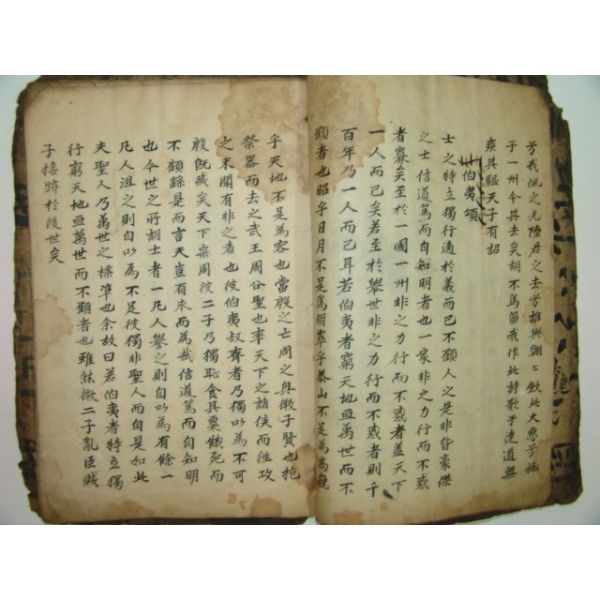 芳我佩之光陸君之去芳誰與翱翔歛此大惠芳施
于一州今其去矣胡不為留我作此詩歌于逵道無
疾其驅天子有詔
伯夷頌
士之特立獨行適於義而已不顧人之是非皆豪傑
之士信道篤而自知明者也一家非之力行而不惑
者寡矣至於一國一州非之力行而不惑者盖天下
一人而已矣若至於舉世非之力行而不惑者則千
百年乃一人而已耳若伯夷者窮天地亘萬世而不
顧者也昭乎日月不足為明崒乎泰山不足為高巍
乎天地不足為容也當殷之亡周之興微子賢也抱
祭器而去之武王周公聖也率天下之諸侯而往攻
之未聞有非之者也彼伯夷叔齊者乃獨以為不可
殷既滅矣天下宗周彼二子乃獨恥食其粟餓死而
不顧繇是而言夫豈有求而為哉信道篤而自知明
也今世之所謂士者一凡人譽之則自以為有餘一
凡人沮之則自以為不足彼獨非聖人而自是如此
夫聖人乃萬世之標準也余故曰若伯夷者特立獨
行窮天地亘萬世而不顧者也雖然微二子亂臣賊
子接跡於後世矣